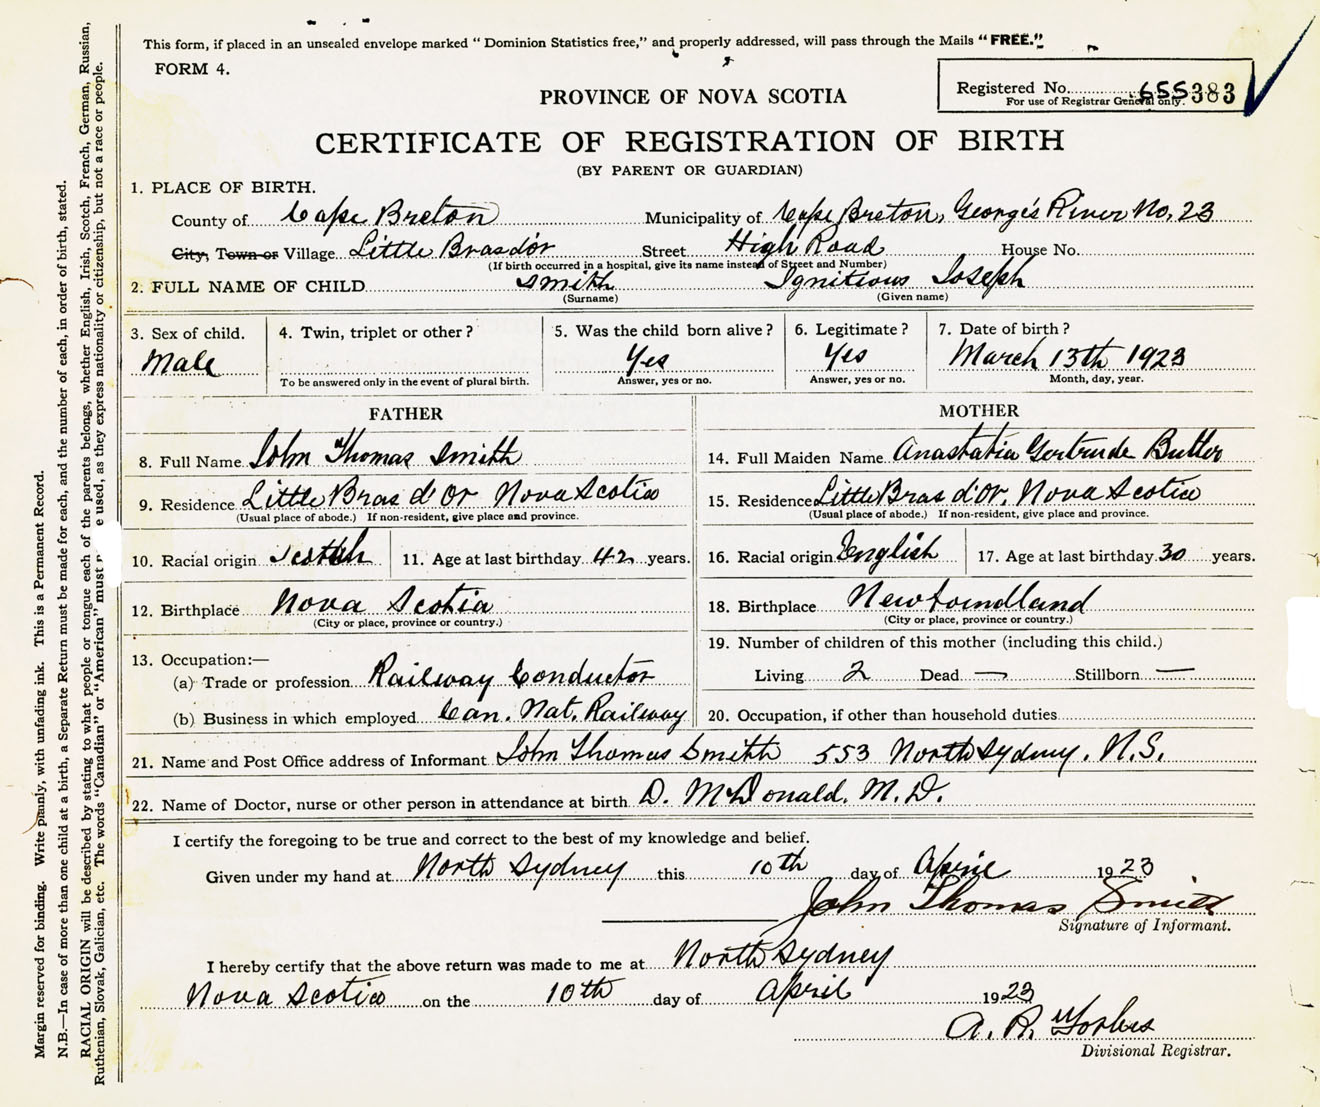 This form, if placed in an unsealed envelope marked "Dominion Statistics free," and properly addressed, will pass through the Mails "FREE."
FORM 4.
Registered No. 655383
For use of Registrar General only.
PROVINCE OF NOVA SCOTIA
CERTIFICATE OF REGISTRATION OF BIRTH
(BY PARENT OR GUARDIAN)
1. PLACE OF BIRTH.
County of Cape Breton Municipality of Cape Breton, George's River No. 23
City, Town or Village Little Brasd'or Street High Road House No.
(If birth occurred in a hospital, give its name instead of Street and Number)
2. FULL NAME OF CHILD Smith Ignitious Joseph
(Surname) (Given name)
3. Sex of child. 4. Twin, triplet or other? 5. Was the child born alive? 6. Legitimate? 7. Date of birth?
Male Yes Yes March 13th 1923
To be answered only in the event of plural birth. Answer, yes or no. Answer, yes or no. Month, day, year.
FATHER MOTHER
8. Full Name John Thomas Smith 14. Full Maiden Name Anastatia Gertrude Butler
9. Residence Little Bras d'Or Nova Scotia 15. Residence Little Bras d'Or, Nova Scotia
(Usual place of abode.) If non-resident, give place and province. (Usual place of abode.) If non-resident, give place and province.
10. Racial origin Scotch 11. Age at last birthday 42 years. 16. Racial origin English 17. Age at last birthday 30 years.
12. Birthplace Nova Scotia 18. Birthplace Newfoundland
(City or place, province or country.) (City or place, province or country.)
13. Occupation:— 19. Number of children of this mother (including this child.)
(a) Trade or profession Railway Conductor Living 2 Dead — Stillborn —
(b) Business in which employed Can. Nat. Railway 20. Occupation, if other than household duties
21. Name and Post Office address of Informant John Thomas Smith 553 North Sydney, N.S.
22. Name of Doctor, nurse or other person in attendance at birth D. McDonald, M.D.
I certify the foregoing to be true and correct to the best of my knowledge and belief.
Given under my hand at North Sydney this 10th day of April 1923
John Thomas Smith
Signature of Informant.
I hereby certify that the above return was made to me at North Sydney
Nova Scotia on the 10th day of April 1923
A. R. Forbes
Divisional Registrar.
Margin reserved for binding. Write plainly, with unfading ink. This is a Permanent Record.
N.B.—In case of more than one child at a birth, a Separate Return must be made for each, and the number of each, in order of birth, stated.
RACIAL ORIGIN will be described by stating to what people or tongue each of the parents belongs, whether English, Irish, Scotch, French, German, Russian,
Ruthenian, Slovak, Galician, etc. The words "Canadian" or "American" must n e used, as they express nationality or citizenship, but not a race or people.